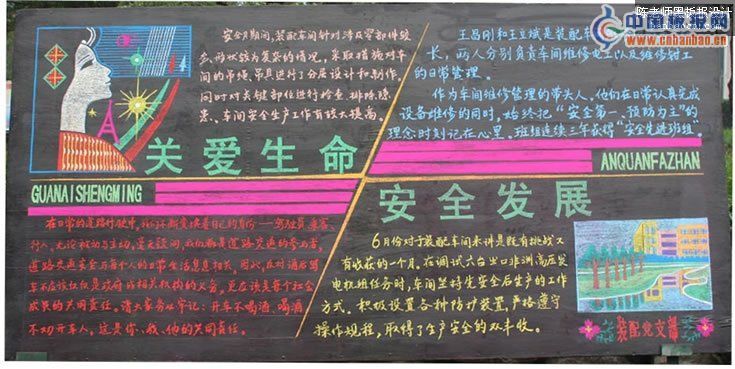 陈老师黑板报设计
中国板报网
www.cnbanbao.cn
安全月期间,装配车间针对涉及零部件较
多,形状较为复杂的情况,采取措施对车
间的吊绳、吊具进行了分层设计和制作,
同时对关键部位进行检查,排除隐
患,车间安全生产工作有较大提高。
王昌刚和王立斌是装配车
长,两人分别负责车间维修电工以及维修钳工
的日常管理。
作为车间维修管理的带头人,他们在日常认真完成
设备维修的同时,始终把“安全第一、预防为主”的
理念时刻记在心里。班组连续三年获得“安全先进班组”。
关爱生命
GUANAISHENGMING
ANQUANFAZHAN
安全发展
在日常的道路行驶中,我们不断变换着自己的身份——驾驶员、乘客、
行人,无论被动与主动,毫无疑问,我们都是道路交通的参与者,
道路交通安全与每个人的日常生活息息相关,因此,反对酒后驾
车不应该仅仅是政府或相关机构的义务,更应该是每个社会
成员的共同责任。请大家务必牢记:开车不喝酒、喝酒
不切开车人,这是你、我、他的共同责任。
6月份对于装配车间来讲是既有挑战又
有收获的一个月。在调试六台出口非洲高压发
电机组任务时,车间坚持先安全后生产的工作
方式。积极设置各种防护装置,严格遵守
操作规程,取得了生产安全的双丰收。
装配党支部